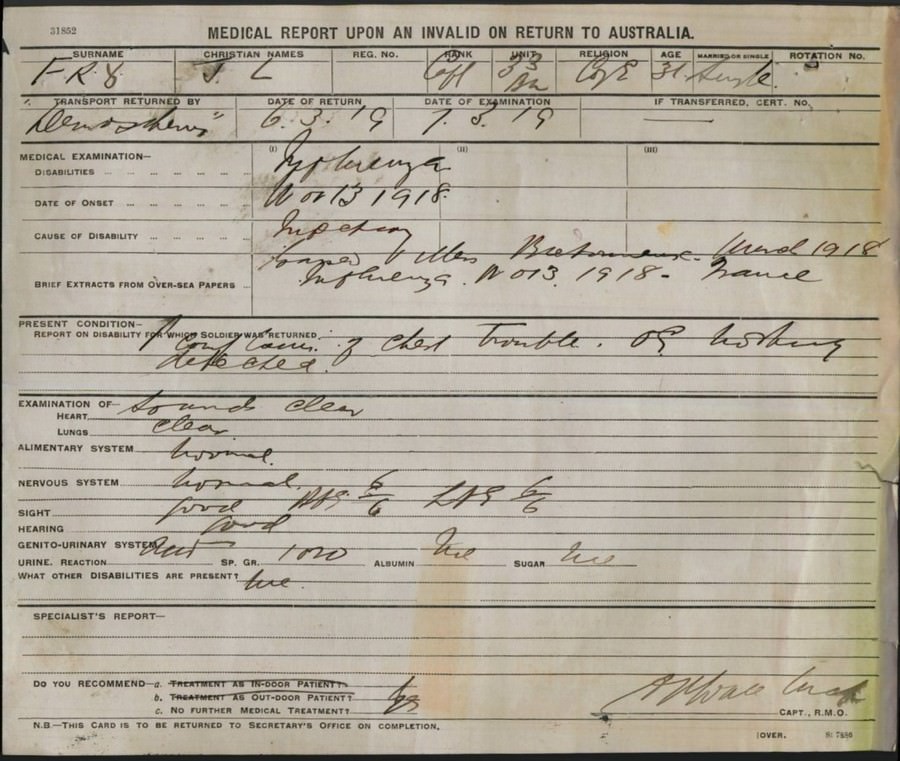 31852
MEDICAL REPORT UPON AN INVALID ON RETURN TO AUSTRALIA.
SURNAME CHRISTIAN NAMES REG. NO. RANK UNIT RELIGION AGE MARRIED OR SINGLE ROTATION NO.
FRY J. L Capt 53 Bn C of E 31 Single
TRANSPORT RETURNED BY DATE OF RETURN DATE OF EXAMINATION IF TRANSFERRED, CERT. NO.
6. 3. 19 7. 3. 19
MEDICAL EXAMINATION— (I) (II) (III)
DISABILITIES Influenza
DATE OF ONSET Nov 13 1918.
CAUSE OF DISABILITY Infection
Villers Bretonneux. 1918
BRIEF EXTRACTS FROM OVER-SEA PAPERS Influenza. Nov 13. 1918 - France
PRESENT CONDITION—
REPORT ON DISABILITY FOR WHICH SOLDIER WAS RETURNED
Complains of chest trouble. OE nothing
detected.
EXAMINATION OF— sounds clear
HEART
LUNGS clear
ALIMENTARY SYSTEM normal.
NERVOUS SYSTEM normal.
SIGHT good 6/6 6/6
HEARING good
GENITO-URINARY SYSTEM
URINE. REACTION acid SP. GR. 1020 ALBUMIN nil SUGAR nil
WHAT OTHER DISABILITIES ARE PRESENT? nil.
SPECIALIST'S REPORT—
DO YOU RECOMMEND—a. TREATMENT AS IN-DOOR PATIENT?
b. TREATMENT AS OUT-DOOR PATIENT?
c. NO FURTHER MEDICAL TREATMENT? yes
CAPT., R.M.O.
N.B.—THIS CARD IS TO BE RETURNED TO SECRETARY'S OFFICE ON COMPLETION.
[OVER. S: 7886